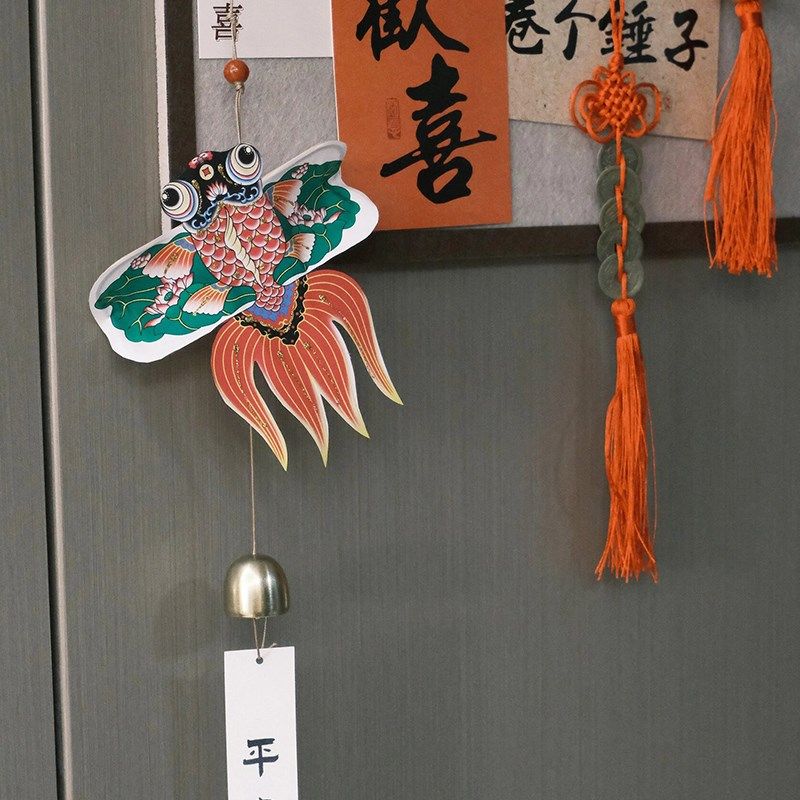 喜
歡喜
卷个錘子
平